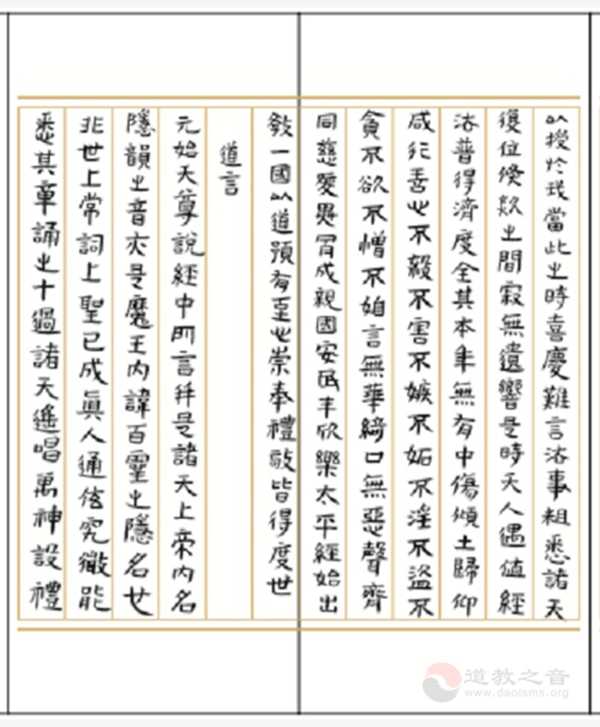 以授於我當此之時喜慶難言法事粗悉諸天
復位倏欻之間寂無遺響是時天人遇值經
法普得濟度全其本年無有中傷傾土歸仰
咸行善心不殺不害不嫉不妬不淫不盜不
貪不欲不憎不㛍言無華綺口無惡聲齊
同慈愛異骨成親國安民丰欣樂太平經始出
教一國以道預有至心崇奉禮敬皆得度世
道言
元始天尊說經中所言并是諸天上帝內名
隱韻之音亦是魔王內諱百靈之隱名也
非世上常詞上聖已成眞人通玄究微能
悉其章誦之十過諸天遙唱萬神設禮
道教之音
www.daoisms.org